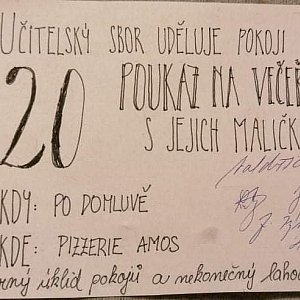 UČITELSKÝ SBOR UDĚLUJE POKOJI
20 POUKAZ NA VEČEŘ
S JEJICH MALIČK
KDY: PO DOMLUVĚ
KDE: PIZZERIE AMOS
úklid pokojů a nekonečný